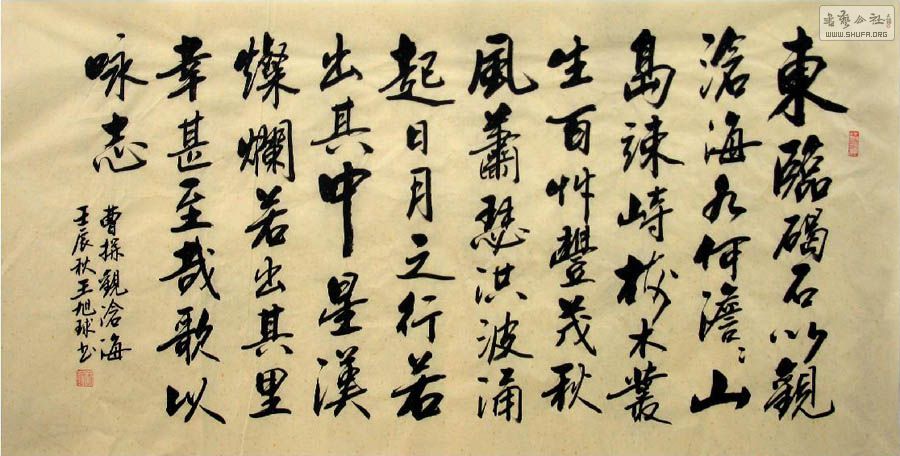 東臨碣石以觀
滄海水何澹〻山
島竦峙樹木叢
生百艸豐茂秋
風蕭瑟洪波涌
起日月之行若
出其中星漢
燦爛若出其里
幸甚至哉歌以
咏志
曹操觀滄海
壬辰秋王旭球书
書藝公社
WWW.SHUFA.ORG